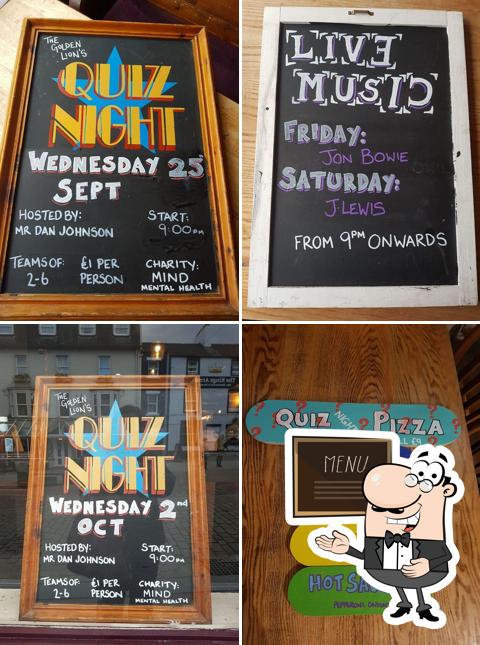 THE
GOLDEN
LION'S
QUIZ
NIGHT
WEDNESDAY 25
SEPT
HOSTED BY:
MR DAN JOHNSON
START:
9:00PM
TEAMS OF:
2-6
£1 PER
PERSON
CHARITY:
MIND
MENTAL HEALTH
LIVE
MUSIC
FRIDAY:
JON BOWIE
SATURDAY:
J-LEWIS
FROM 9PM ONWARDS
THE
GOLDEN
LION'S
QUIZ
NIGHT
WEDNESDAY 2nd
OCT
HOSTED BY:
MR DAN JOHNSON
START:
9:00PM
TEAMS OF:
2-6
£1 PER
PERSON
CHARITY:
MIND
MENTAL HEALTH
? QUIZ NIGHT PIZZA ?
ALL £9
MENU
HOT
PEPPERONI,